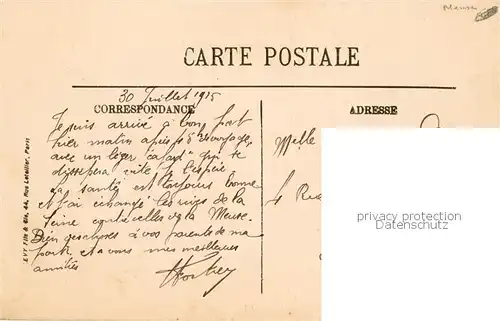 Meuse
CARTE POSTALE
30 Juillet 1915
CORRESPONDANCE
ADRESSE
Je suis arrivé à bon port
hier matin après
avec un léger "cafard" qui se
dissipera vite j'espère
La santé est toujours bonne
et j'ai échangé les rives de la
Seine contre celles de la Meuse.
Bien des choses à vos parents de ma
part, et à vous mes meilleures
amitiés
Melle
4 Rue
privacy protection
veikkos.com
LEVY Fils & Cie, 44, Rue Letellier, Paris